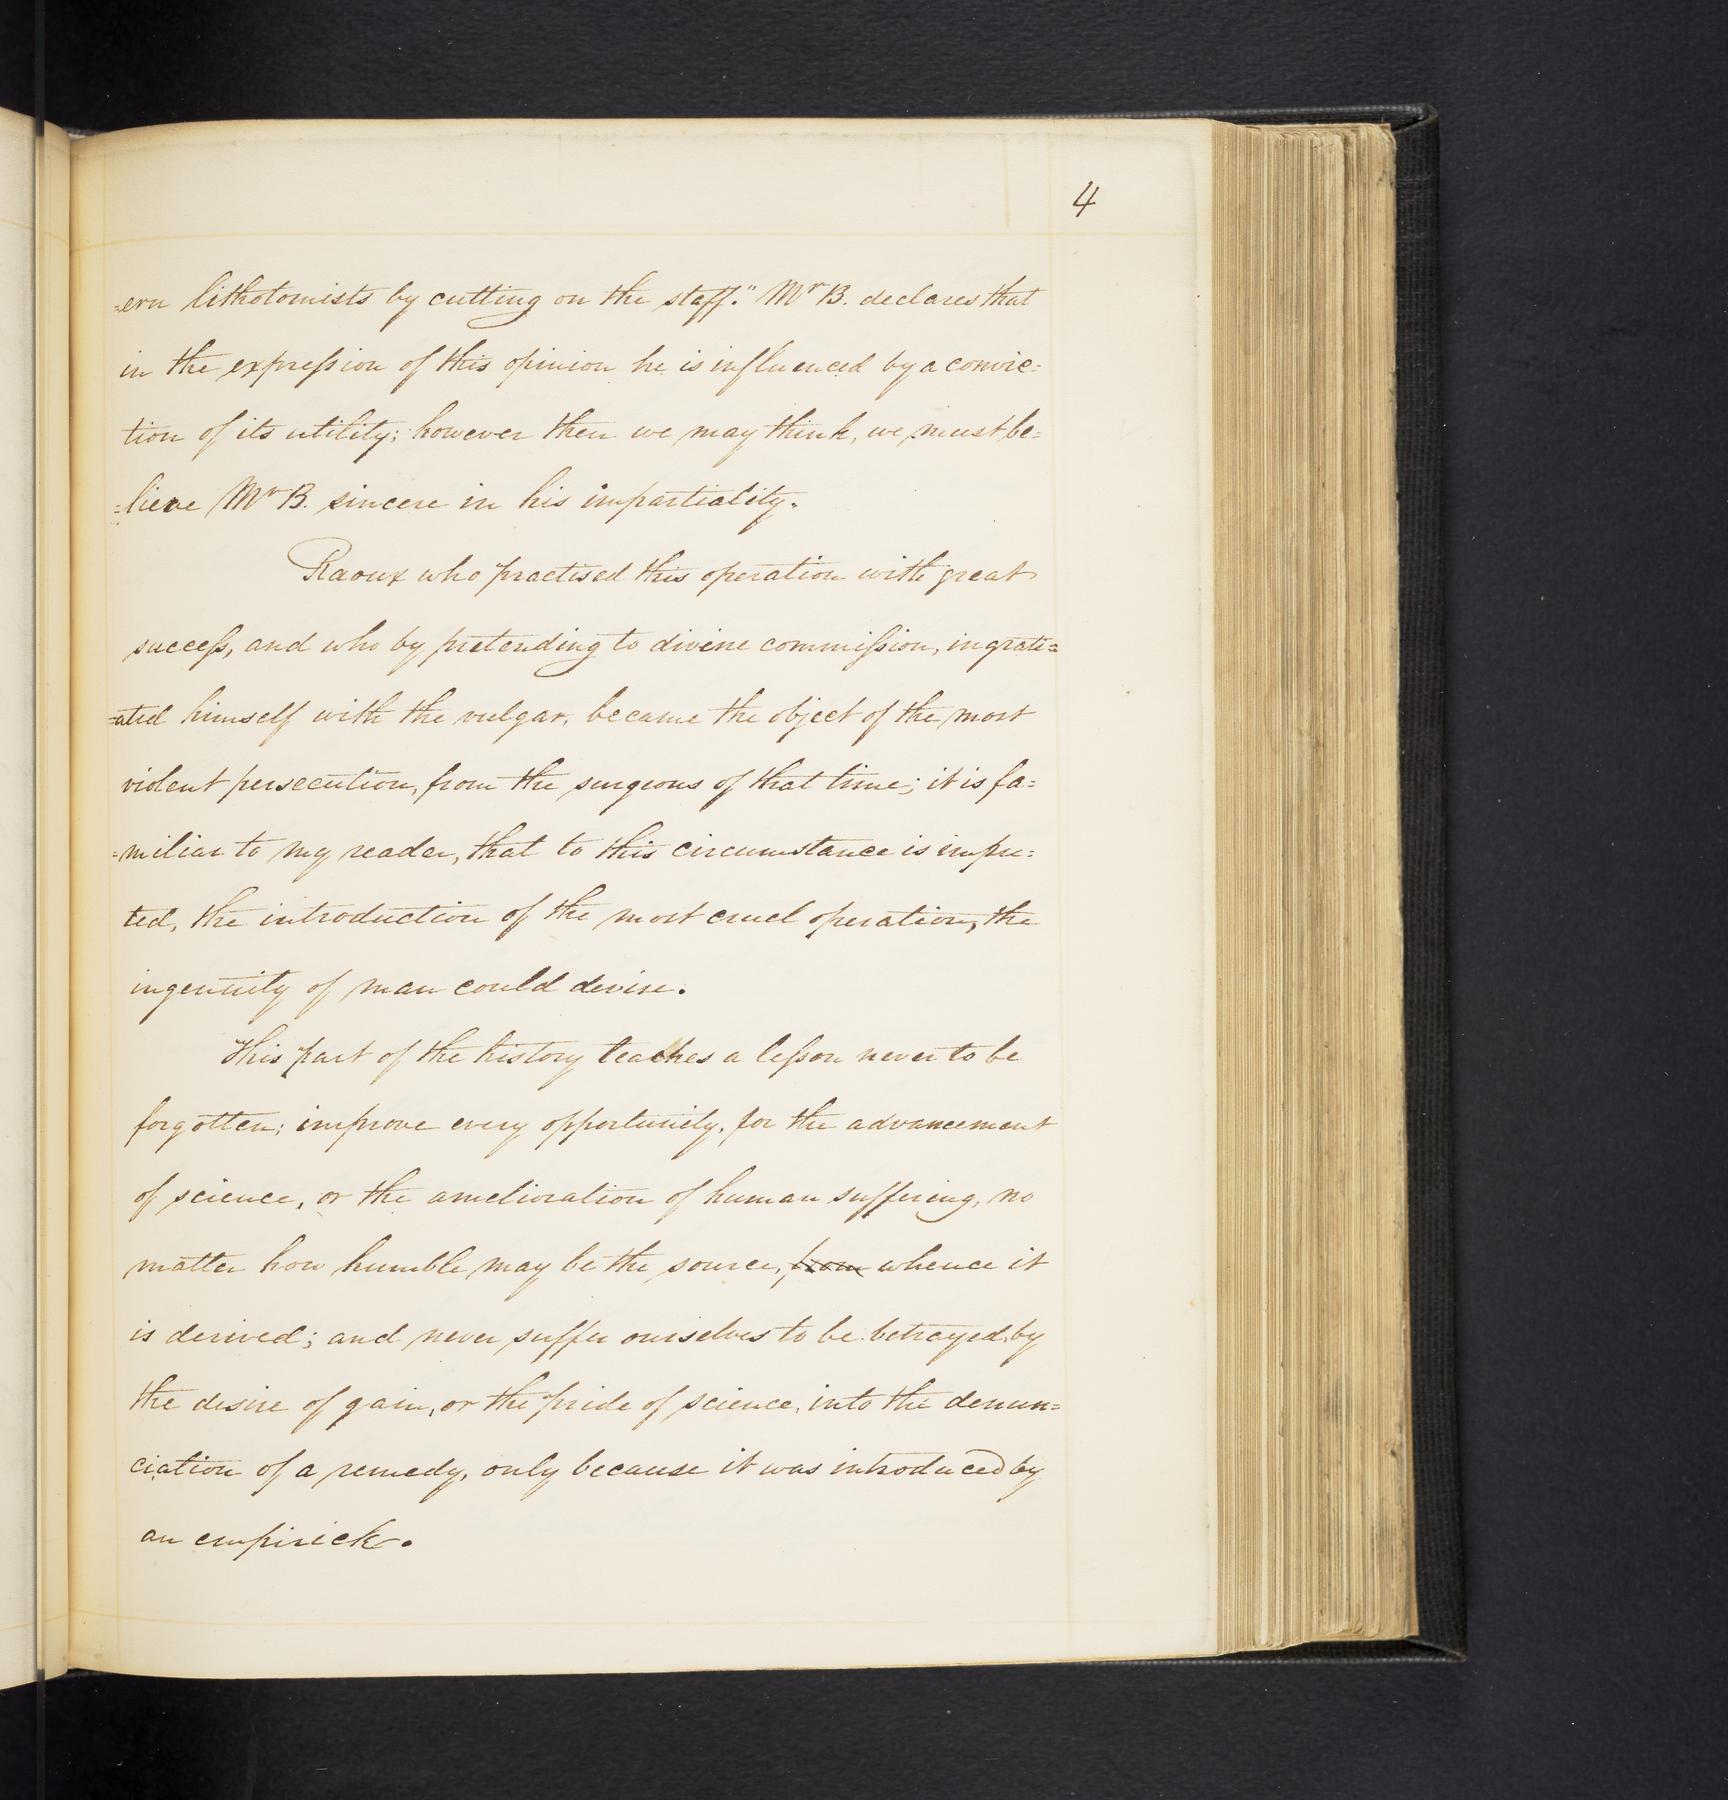 4
=ern lithotomists by cutting on the staff." Mr B. declares that
in the expression of this opinion he is influenced by a convic=
tion of its utility; however then we may think, we must be=
=lieve Mr B. sincere in his impartiality.
Raoux who practised this operation with great
success, and who by pretending to divine commission, ingrati=
=ated himself with the vulgar, became the object of the most
violent persecution, from the surgeons of that time; it is fa=
=miliar to my reader, that to this circumstance is impu=
ted, the introduction of the most cruel operation, the
ingenuity of man could devise.
This part of the history teaches a lesson never to be
forgotten; improve every opportunity, for the advancement
of science, or the amelioration of human suffering, no
matter how humble may be the source, from whence it
is derived; and never suffer ourselves to be betrayed, by
the desire of gain, or the pride of science, into the denun=
ciation of a remedy, only because it was introduced by
an empirick.